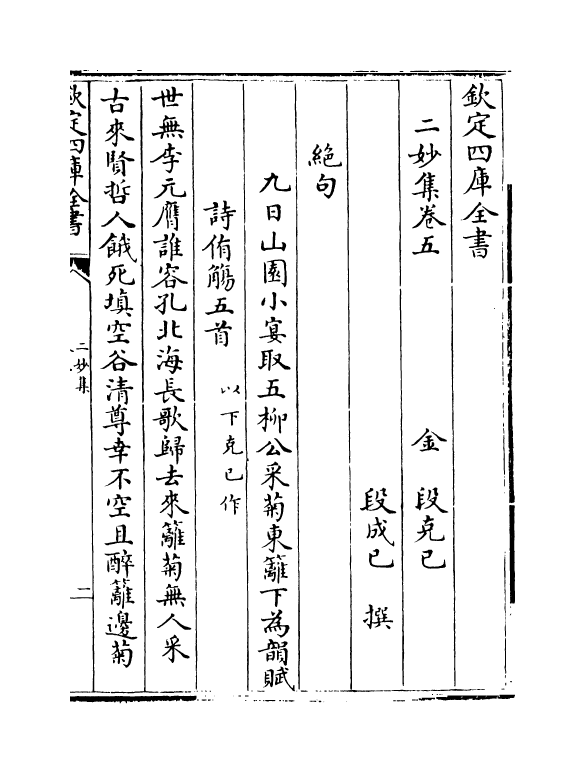 欽定四庫全書
二妙集卷五
金 段克已
段成已 撰
絶句
九日山園小宴取五柳公采菊東籬下為韻賦
詩侑觴五首 以下克已作
世無李元膺誰容孔北海長歌歸去來籬菊無人采
古來賢哲人餓死填空谷清尊幸不空且醉籬邊菊
欽定四庫全書
二妙集
二